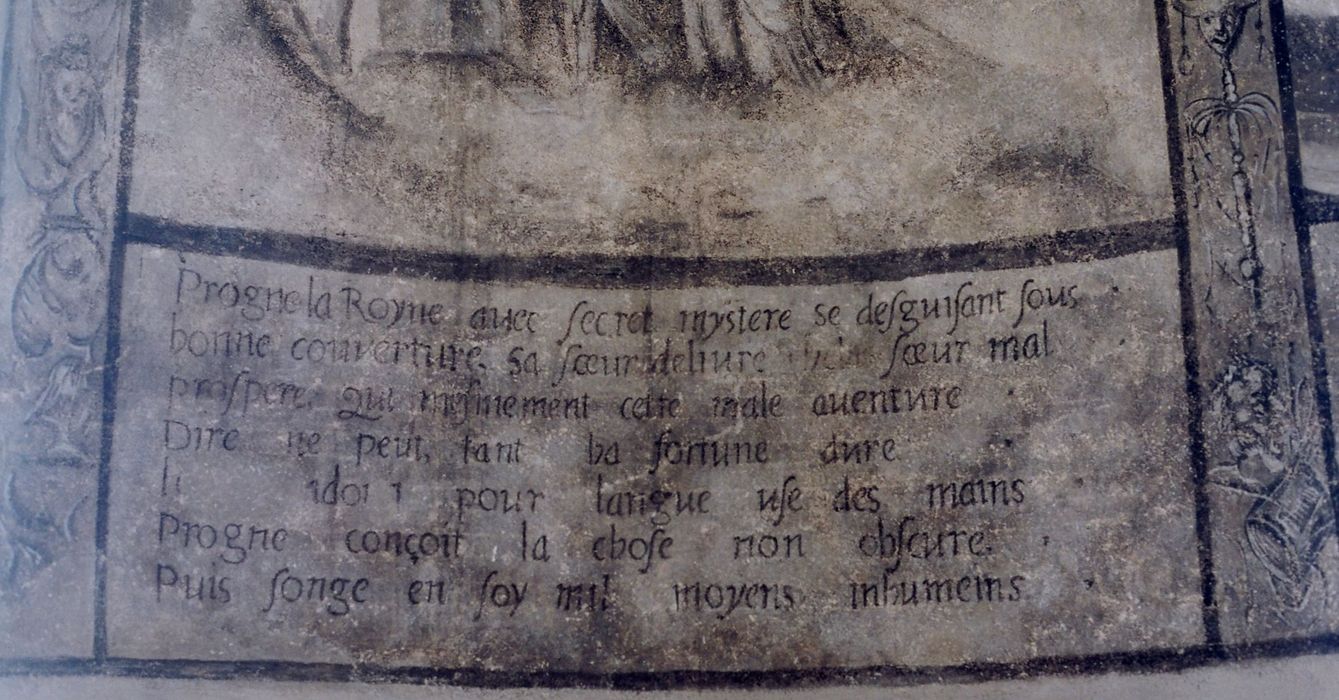 Progne la Royne avec secret mystere se desguisant sous
bonne couverture, sa sœur delivre sœur mal
prospere, Qui cette male aventure
Dire ne peut, tant ha fortune dure
pour langue use des mains
Progne conçoit la chose non obscure.
Puis songe en soy mil moyens inhumeins